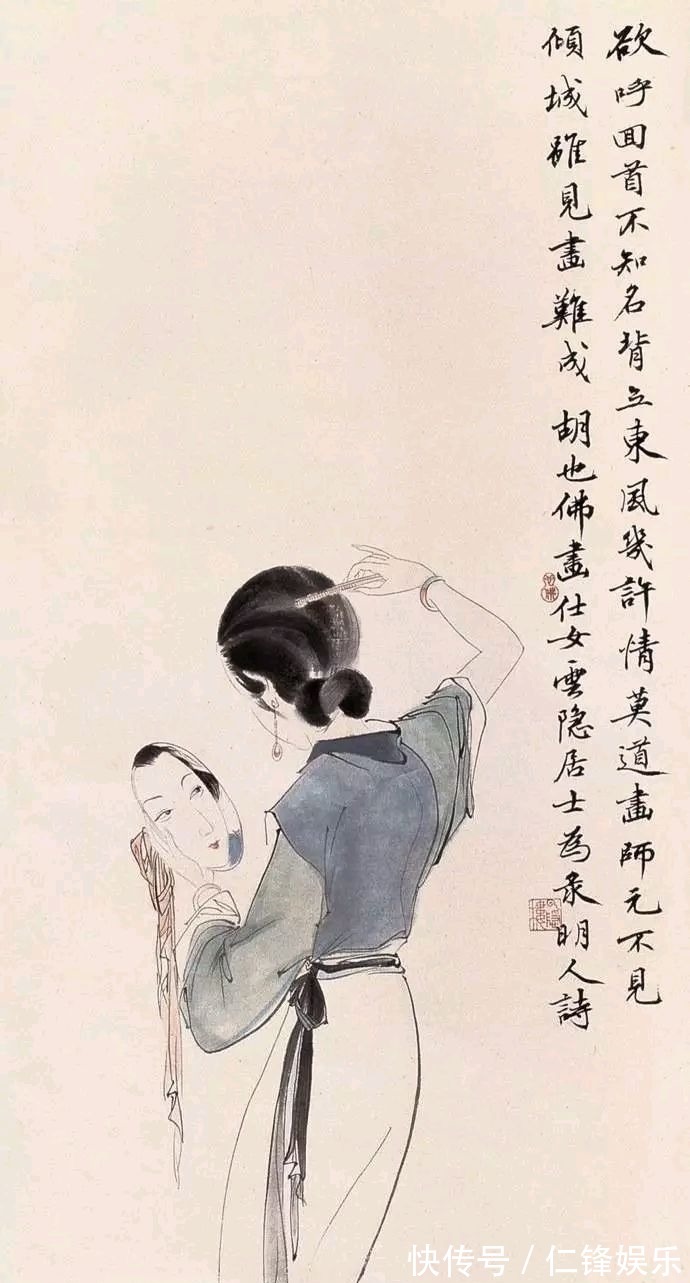 欲呼回首不知名背立東風幾許情莫道畫師元不見
傾城雖見畫難成 胡也佛畫仕女雲隐居士為录明人詩
快传号/仁锋娱乐